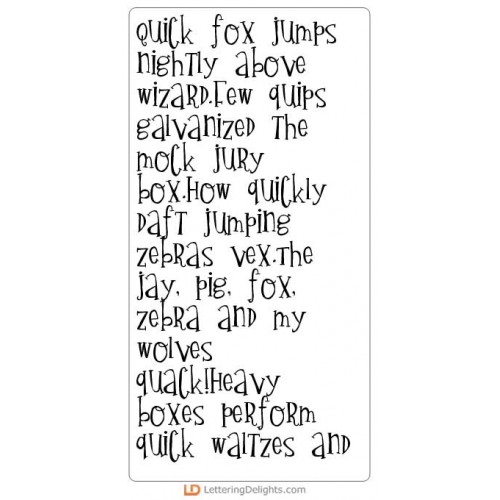 Quick fox jumps
nightly above
wizard.Few quips
galvanized the
mock jury
box.How quickly
daft jumping
zebras vex.The
jay, pig, fox,
zebra and my
wolves
quack!Heavy
boxes perform
quick waltzes and
LD LetteringDelights.com